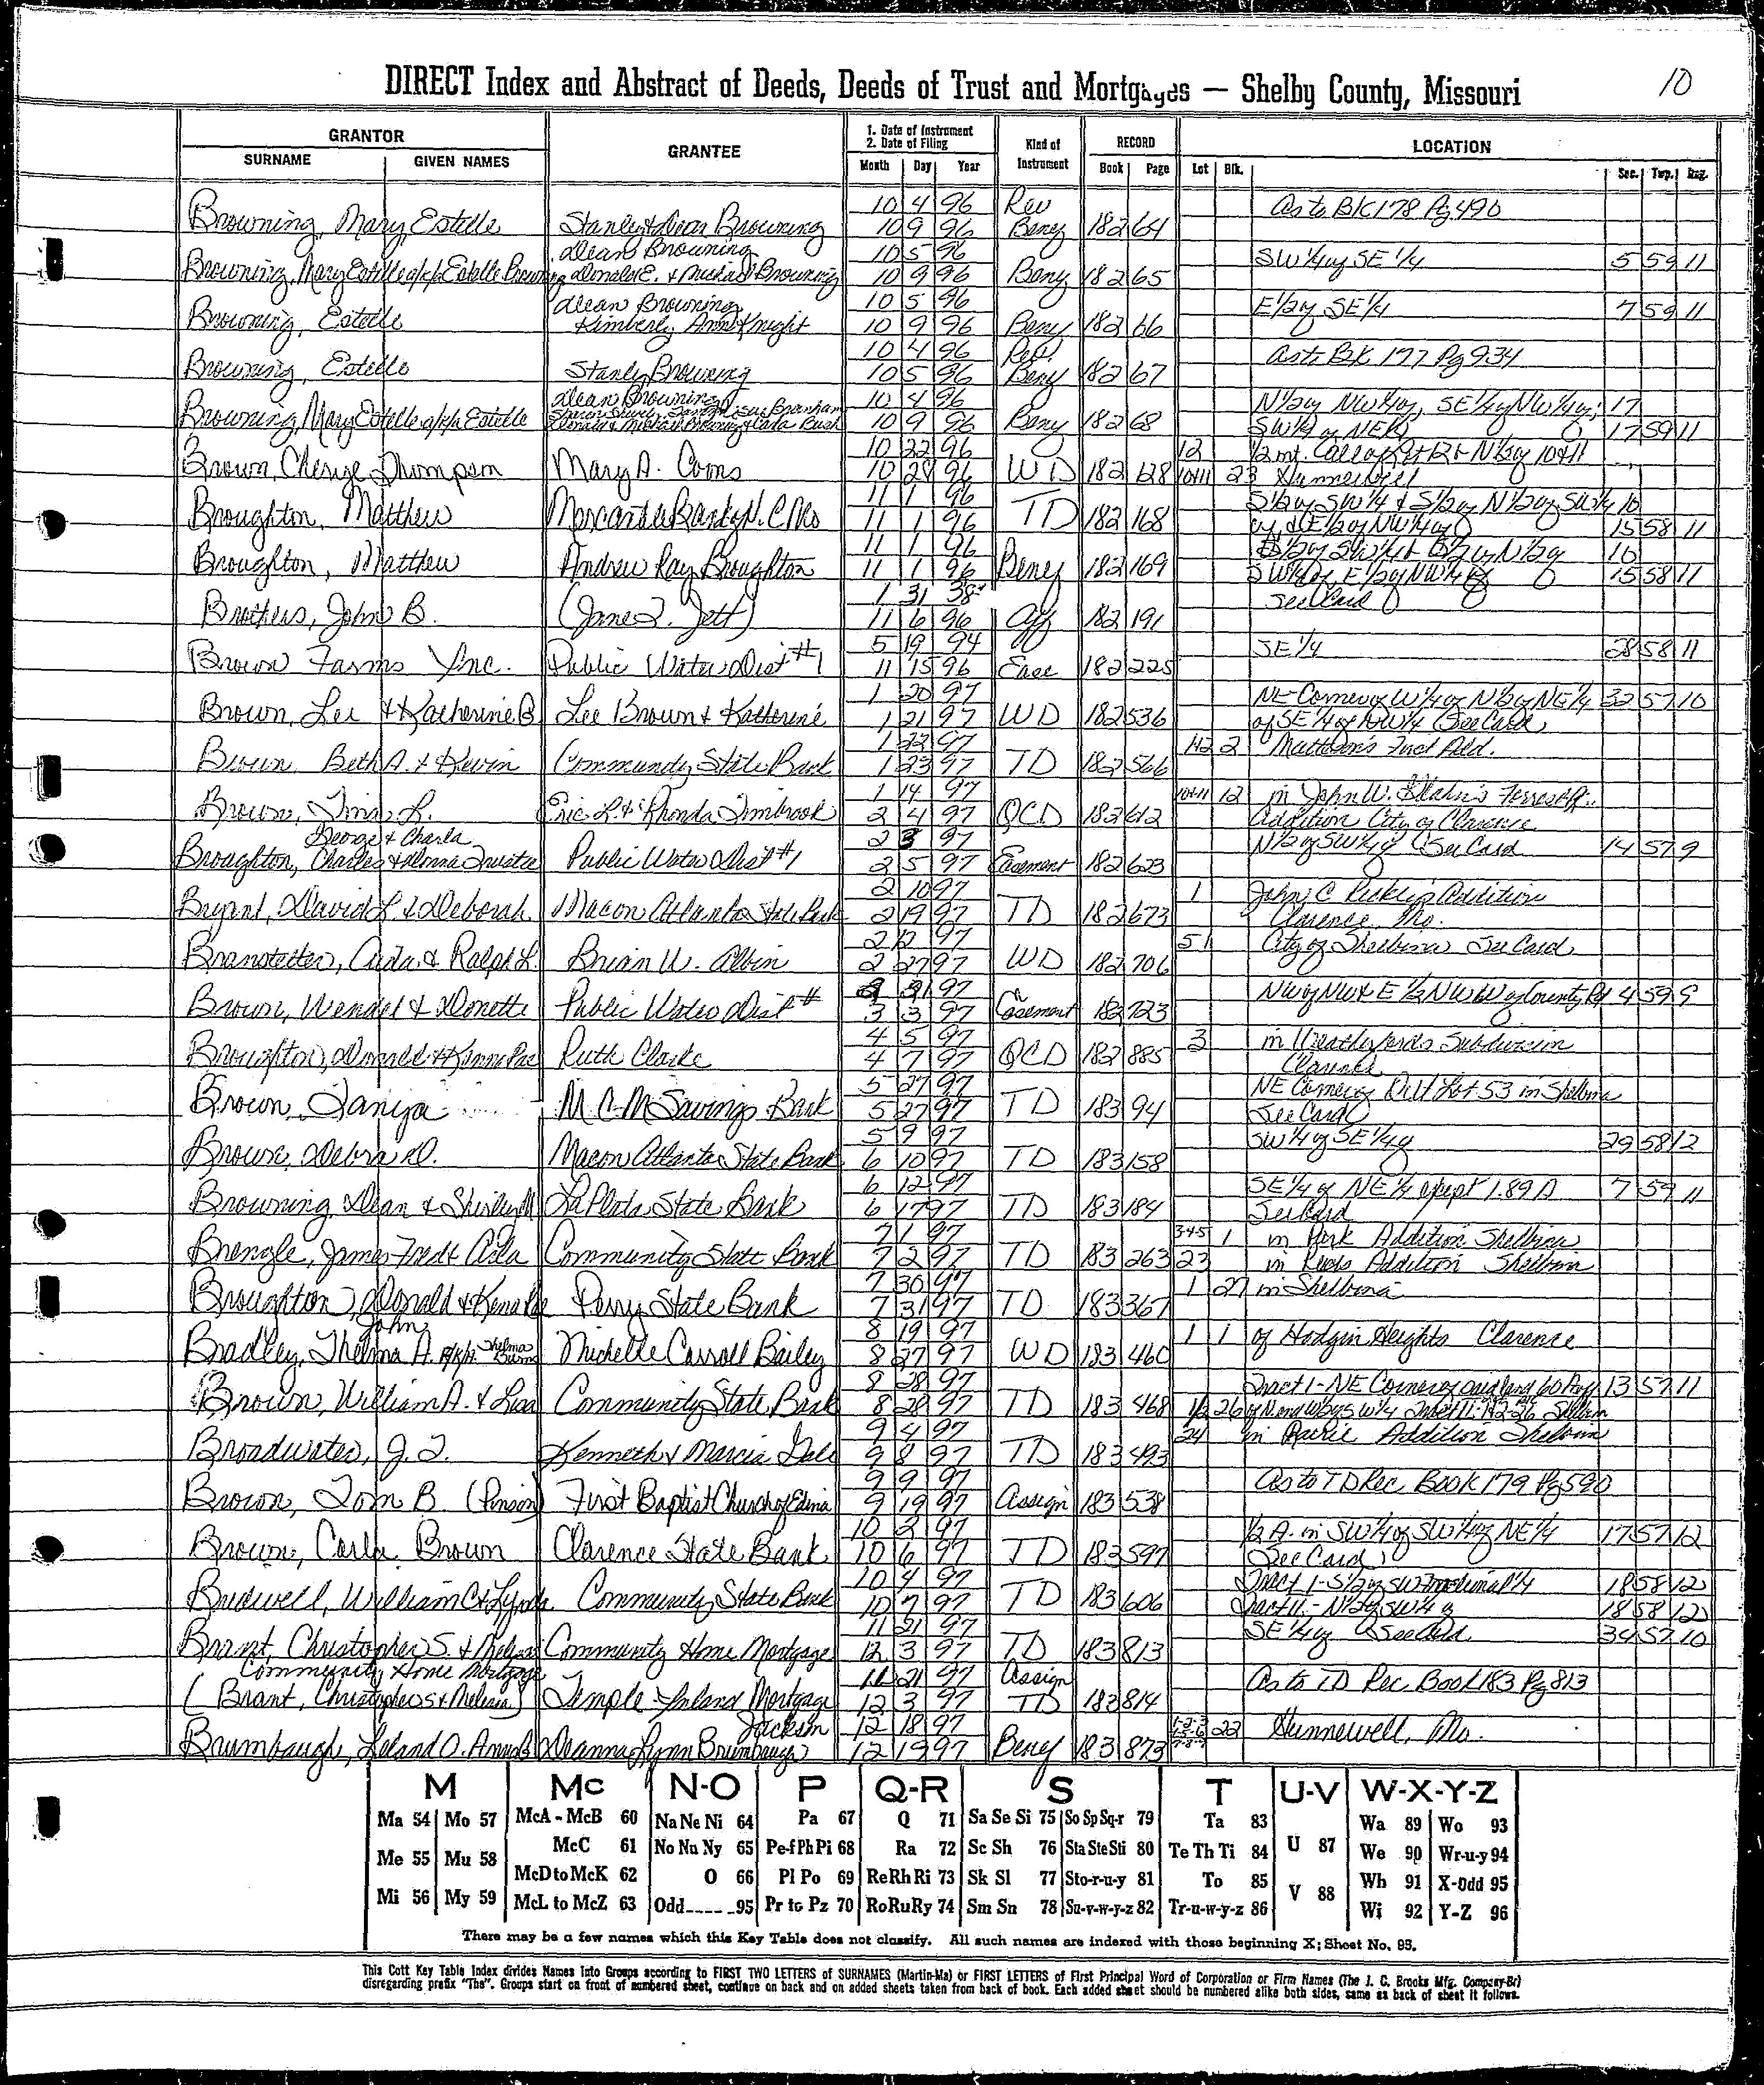 10
DIRECT Index and Abstract of Deeds, Deeds of Trust and Mortgages — Shelby County, Missouri
GRANTOR GRANTEE 1. Date of Instrument 2. Date of Filing Kind of Instrument RECORD LOCATION
SURNAME GIVEN NAMES Month Day Year Book Page Lot Blk. Sec. Twp. Rng.
10 4 96 Rev as to BK 178 Pg 490
Browning, Mary Estelle Stanley & Dean Browning 10 9 96 Beney 182 64
Dean Browning 10 5 96 SW 1/4 of SE 1/4 5 59 11
Browning, Mary Estelle a/k/a Estelle Browning Donald E. & Michael Browning 10 9 96 Beny 182 65
Dean Browning 10 5 96 E 1/2 of SE 1/4 7 59 11
Browning, Estelle Kimberly Ann Knight 10 9 96 Beny 182 66
10 4 96 as to BK 177 Pg 934
Browning, Estelle Stanley Browning 10 5 96 Beny 182 67
Dean Browning 10 4 96 N 1/2 of NW 1/4 of, SE 1/4 of NW 1/4 of; 17
Browning, Mary Estelle a/k/a Estelle 10 9 96 Beny 182 68 SW 1/4 of NE 1/4 17 59 11
10 22 96 12
Brown, Cherye Thompson Mary A. Coons 10 28 96 WD 182 128 10+11 23 Hunnewell
11 1 96 S 1/2 of SW 1/4 & S 1/2 of N 1/2 of SW 1/4 10
Broughton, Matthew Mercantile Bank of N. C Mo 11 1 96 TD 182 168 of & E 1/2 of NW 1/4 of 15 58 11
11 1 96 10
Broughton, Matthew Andrew Ray Broughton 11 1 96 Beney 182 169 SW 1/4 of, E 1/2 of NW 1/4 of 15 58 11
1 31 38 See Card
Brothers, John B. (Jane I. Jett) 11 6 96 Aff 182 191
5 19 94 SE 1/4 28 58 11
Brown Farms Inc. Public Water Dist #1 11 15 96 Ease 182 225
1 20 97 NE Corner of W 1/4 of N 1/2 of NE 1/4 32 57 10
Brown, Lee & Katherine B Lee Brown & Katherine 1 21 97 WD 182 536 of SE 1/4 of NW 1/4 (See Card
1 22 97 1+2 2
Brown Beth A. & Kevin Community State Bank 1 23 97 TD 182 566
1 14 97 10+11 12 in John W.
Brown, Tina L. Eric L. & Rhonda Timbrook 2 4 97 QCD 182 612 Addition City of Clarence
George & Charla 2 3 97 N 1/2 of SW 1/4 of (See Card 14 57 9
Broughton, Charles & Donna Trustee Public Water Dist #1 2 5 97 Easement 182 623
2 10 97 1 John C Addition
Bryant, David L & Deborah Macon Atlanta State Bank 2 19 97 TD 182 673 Clarence, Mo.
2 12 97 51 City of Shelbina See Card
Branstetter, Arda & Ralph L. Brian W. Albin 2 27 97 WD 182 706
97 4 59 9
Brown, Wendel & Donette Public Water Dist # 3 3 97 Easement 182 723
4 5 97 3 in Weatherfords Subdivision
Broughton, Donald & Kenna Rae Ruth Clarke 4 7 97 QCD 182 885 Clarence
5 27 97 NE Corner of Out Lot 53 in Shelbina
Brown, Tanya M C M Savings Bank 5 27 97 TD 183 94 See Card
5 9 97 SW 1/4 of SE 1/4 of 29 58 12
Brown, Debra D. Macon Atlanta State Bank 6 10 97 TD 183 158
6 12 97 SE 1/4 of NE 1/4 except 1.89 A 7 59 11
Browning Dean & Shirley M La Plata State Bank 6 17 97 TD 183 184 See Card
7 1 97 345 1 in Park Addition Shelbina
Brengle, James Fred & Arla Community State Bank 7 2 97 TD 183 263 23 in Addition Shelbina
7 30 97 1 27 in Shelbina
Broughton, Donald & Kenna Rae Perry State Bank 7 31 97 TD 183 367
John 8 19 97 1 1 of Hodgin Heights Clarence
Bradley, Thelma A. a/k/a Thelma Burns Michelle Carroll Bailey 8 27 97 WD 183 460
8 28 97 Tract 1 - NE Corner of 13 57 11
Brown, William A. & Lisa Community State Bank 8 28 97 TD 183 468
9 4 97 24 in Addition Shelbina
Broadwater, J. T. Kenneth & Marcia 9 8 97 TD 183 493
9 9 97 As to TD Rec. Book 179 Pg 590
Brown, Tom B First Baptist Church of Edina 9 19 97 Assign 183 538
10 2 97 1/2 A. in SW 1/4 of SW 1/4 of NE 1/4 17 57 12
Brown, Carla Brown Clarence State Bank 10 6 97 TD 183 597 See Card
10 4 97 Tract 1 - S 1/2 of SW Fractional 1/4 18 58 12
Bridwell, William C & Lynda Community State Bank 10 7 97 TD 183 606 Tract 11 - N 1/2 of SW 1/4 of 18 58 12
11 21 97 SE 1/4 of See Card 34 57 10
Brant, Christopher S. & Melissa Community Home Mortgage 12 3 97 TD 183 813
Community Home Mortgage 11 21 97 Assign As to TD Rec. Book 183 Pg 813
(Brant, Christopher S & Melissa) Temple Inland Mortgage 12 3 97 TD 183 814
Jackson 12 18 97 22 Hunnewell, Mo.
Brumbaugh, Leland O. Deanna Lynn Brumbaugh 12 19 97 Beny 183 873
M Mc N-O P Q-R S T U-V W-X-Y-Z
Ma 54 Mo 57 McA - McB 60 Na Ne Ni 64 Pa 67 Q 71 Sa Se Si 75 So Sp Sq-r 79 Ta 83 Wa 89 Wo 93
Me 55 Mu 58 McC 61 No Nu Ny 65 Pe-f Ph Pi 68 Ra 72 Sc Sh 76 Sta Ste Sti 80 Te Th Ti 84 U 87 We 90 Wr-u-y 94
McD to McK 62 O 66 Pl Po 69 Re Rh Ri 73 Sk Sl 77 Sto-r-u-y 81 To 85 V 88 Wh 91 X-Odd 95
Mi 56 My 59 McL to McZ 63 Odd 95 Pr to Pz 70 Ro Ru Ry 74 Sm Sn 78 Su-v-w-y-z 82 Tr-u-w-y-z 86 Wi 92 Y-Z 96
There may be a few names which this Key Table does not classify. All such names are indexed with those beginning X; Sheet No. 95.
This Cott Key Table Index divides Names Into Groups according to FIRST TWO LETTERS of SURNAMES (Martin-Ma) or FIRST LETTERS of First Principal Word of Corporation or Firm Names (The J. C. Brooks Mfg. Company-Br)
disregarding prefix "The". Groups start on front of numbered sheet, continue on back and on added sheets taken from back of book. Each added sheet should be numbered alike both sides, same as back of sheet it follows.